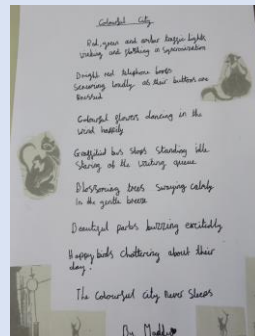 Colourful City
Red, green and amber traffic lights
winking and flashing in syncronisation
Bright red telephone boxes
Screaming loudly as their buttons are
Colourful flowers dancing in the
wind happily
Graffitied bus stops standing idle
Staring at the waiting queue
Blossoming trees swaying calmly
In the gentle breeze
Beautiful parks buzzing excitedly
Happy birds chattering about their
day!
The Colourful City Never Sleeps
By Maddie